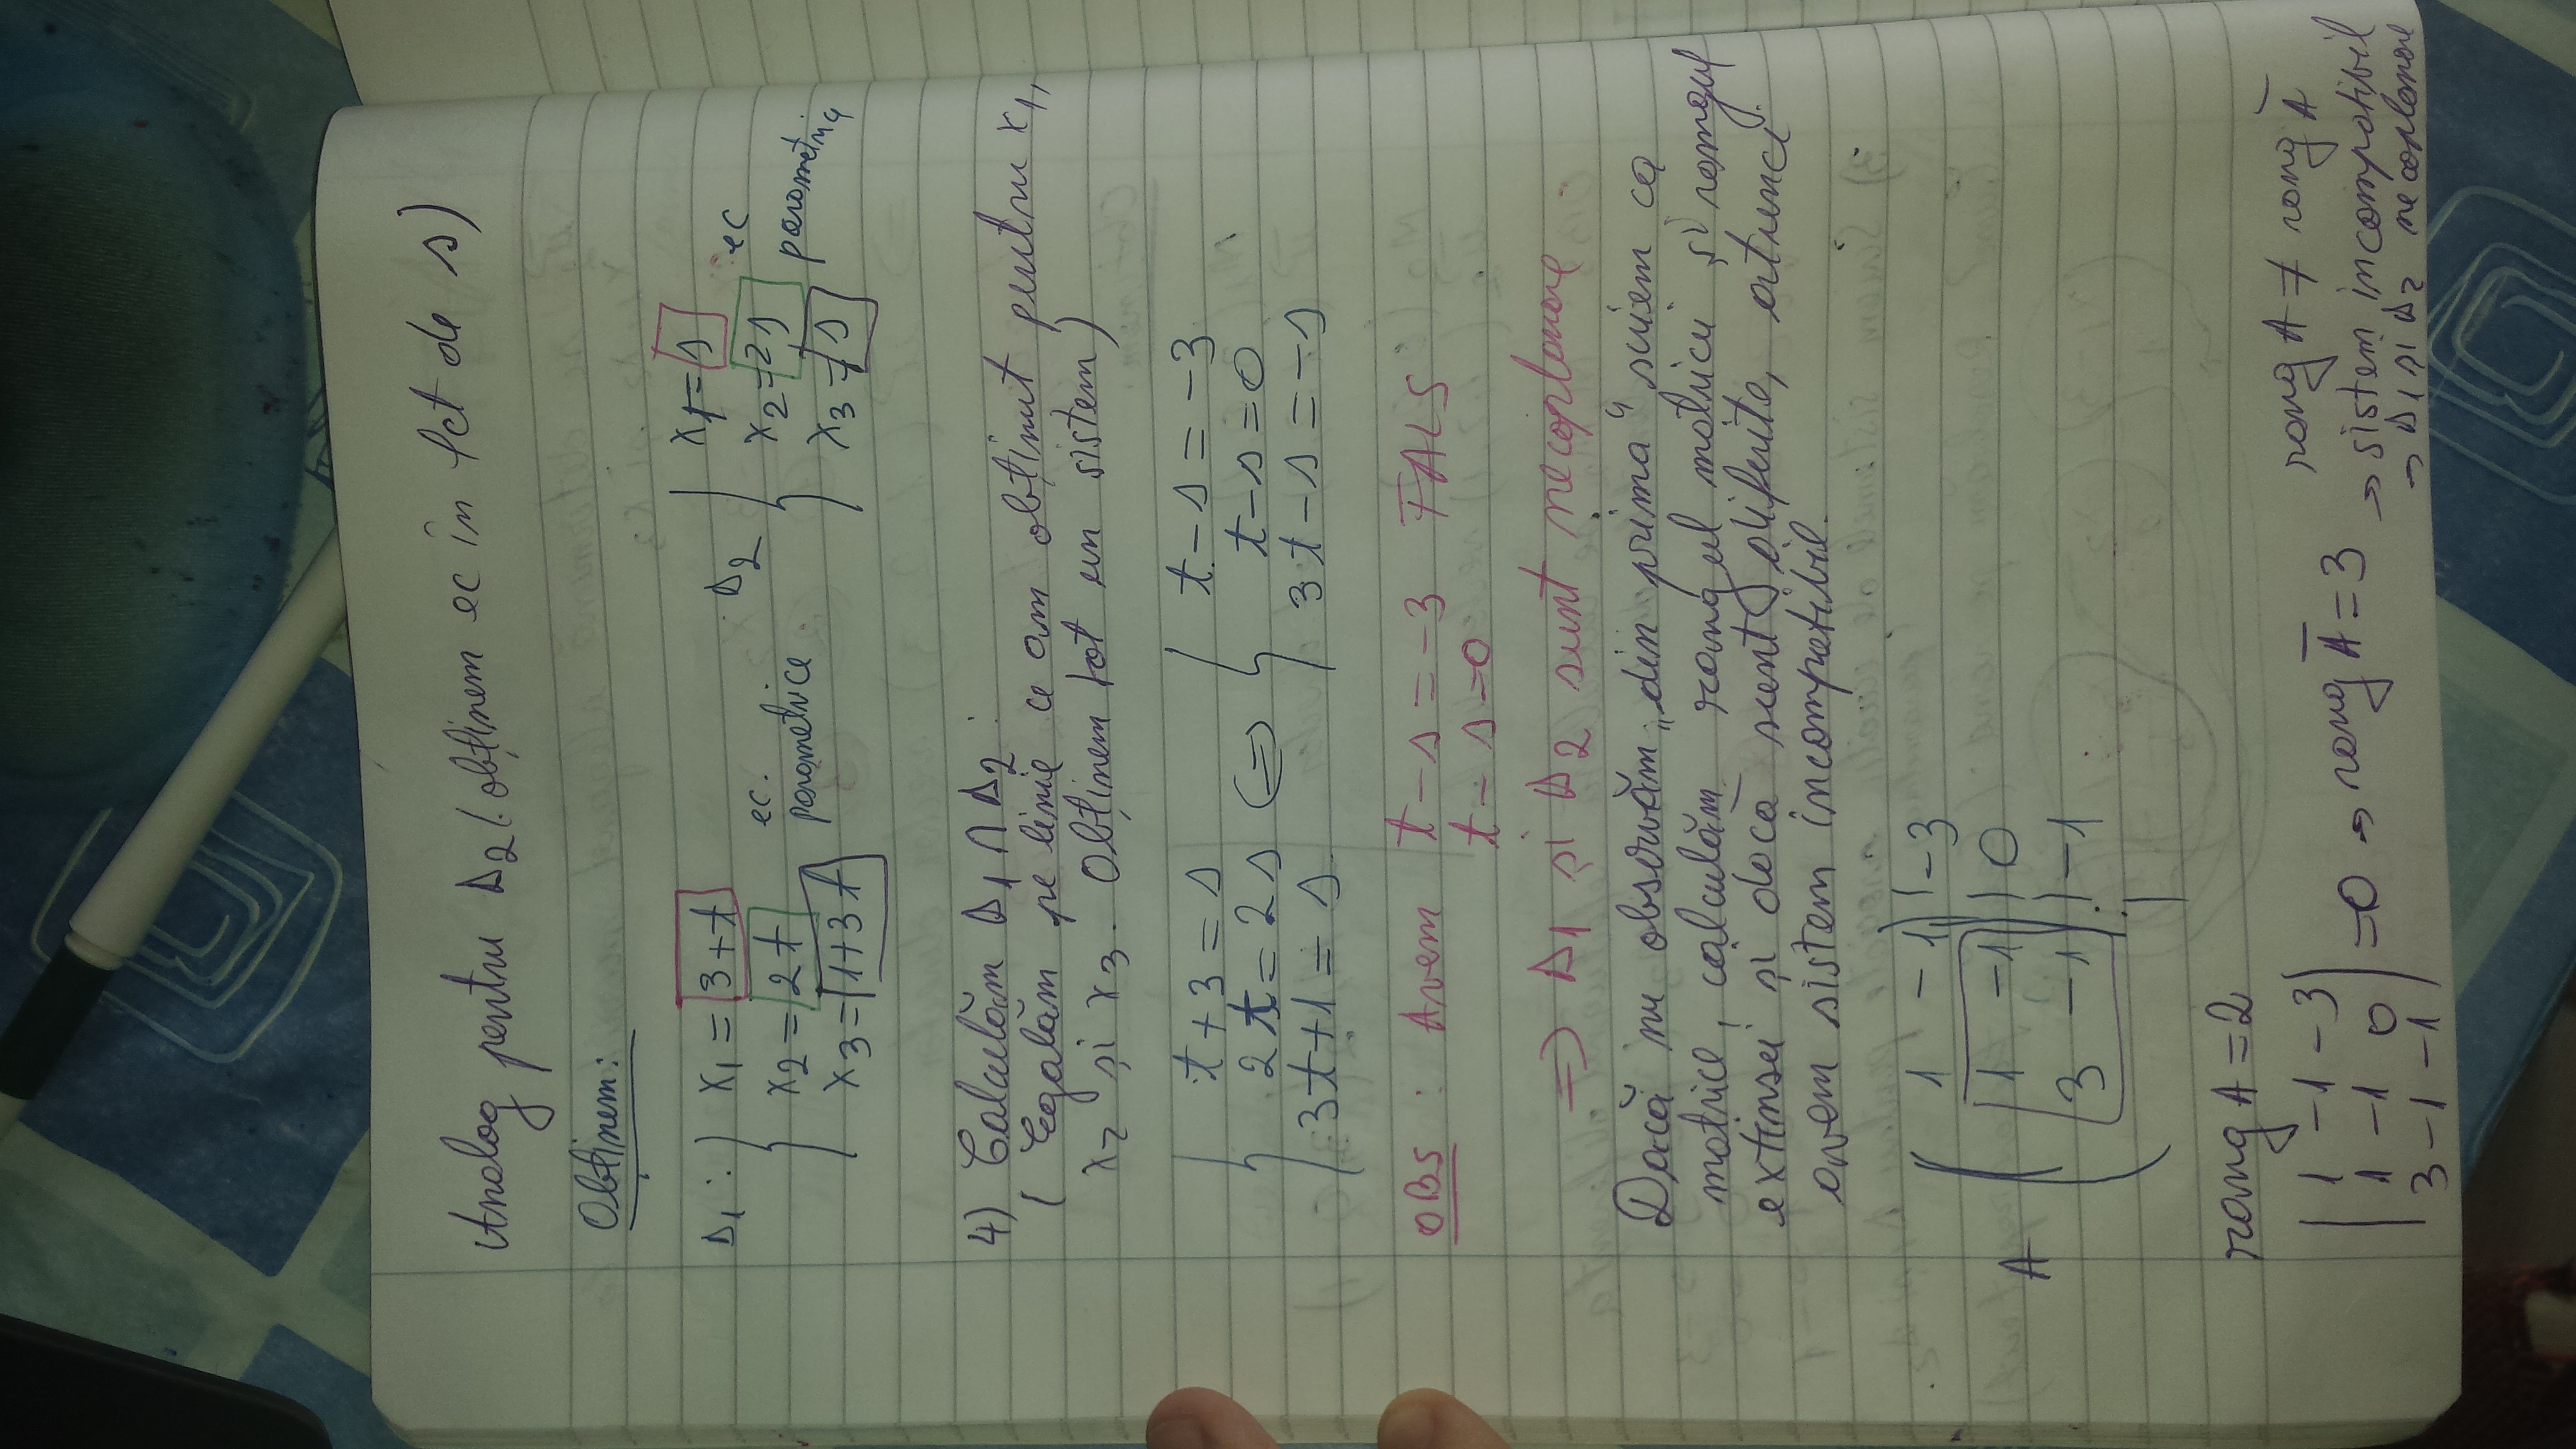 Analog pentru Δ2 (obținem ec în fct de s)
Obținem:
Δ1 : { x1 = 3+t
x2 = 2t
x3 = 1+3t
ec.
parametrice
Δ2 { x1 = s
x2 = 2s
x3 = s
ec
parametrice
4) Calculăm Δ1 ∩ Δ2 :
( Egalăm pe linie ce am obținut pentru x1,
x2 și x3. Obținem tot un sistem)
{ t+3 = s
2t = 2s
3t+1 = s
⇔
{ t-s = -3
t-s = 0
3t-s = -s
OBS : Avem t-s = -3 FALS
t-s = 0
⇒ Δ1 și Δ2 sunt necoplanare
Dacă nu observăm „din prima" scriem ca
matrice, calculăm rangul matricii și rangul
extinsei și dacă sunt diferite, atunci
avem sistem incompatibil.
A ( 1 -1 | -3
1 -1 | 0
3 -1 | -1
rang A = 2
| 1 -1 -3 |
| 1 -1 0 | = 0 → rang Ā = 3
| 3 -1 -1 |
rang A ≠ rang Ā
→ sistem incompatibil
→ Δ1 și Δ2 necoplanare